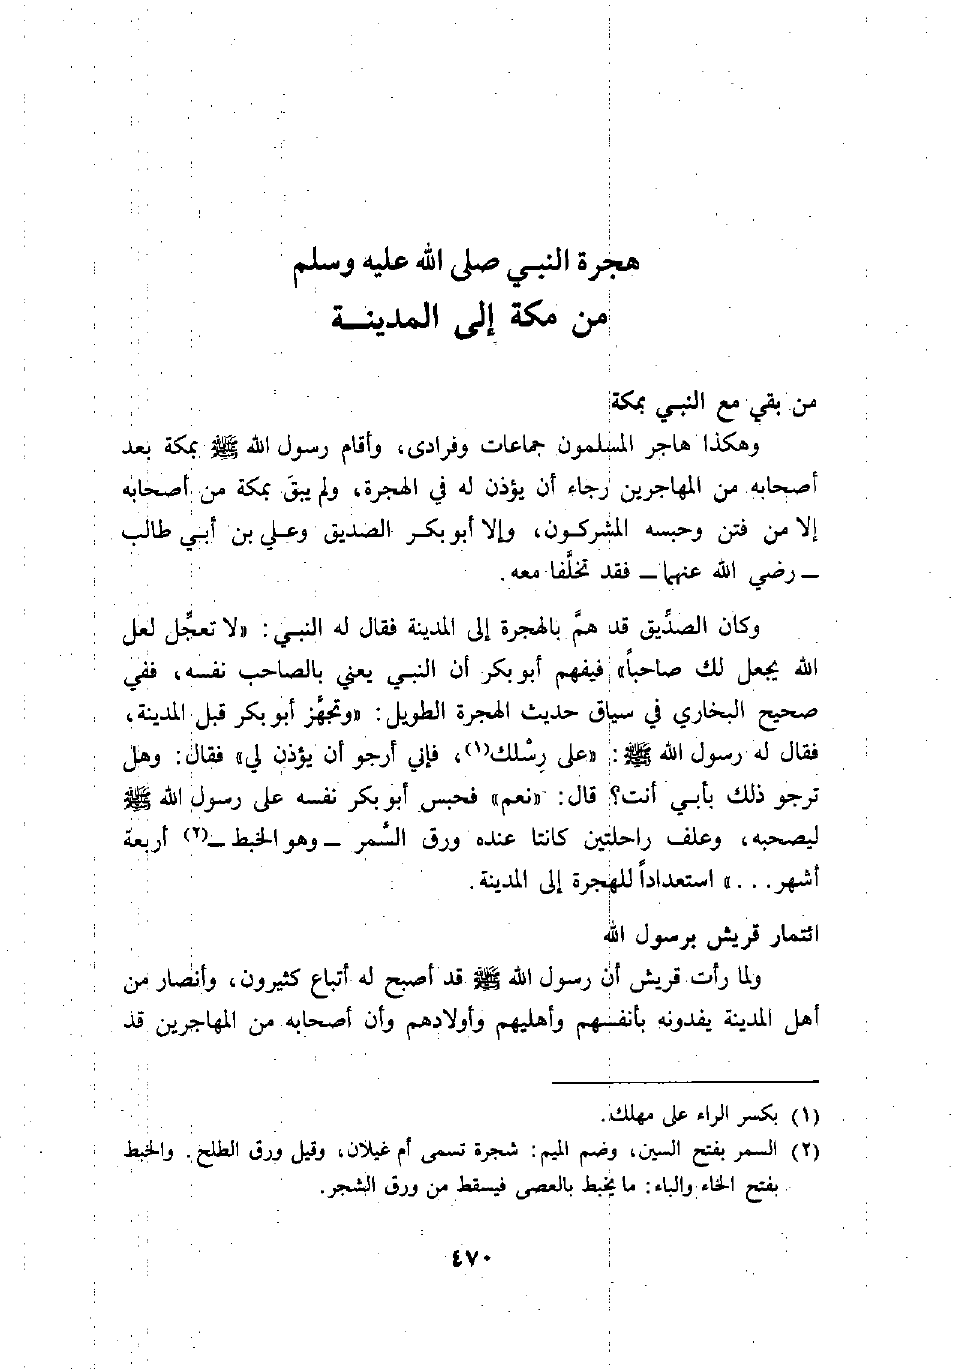 هجرة النبي صلى الله عليه وسلم
من مكة إلى المدينة
من بقي مع النبي بمكة
وهكذا هاجر المسلمون جماعات وفرادى، وأقام رسول الله ﷺ بمكة بعد
أصحابه من المهاجرين رجاء أن يؤذن له في الهجرة، ولم يبقَ بمكة من أصحابه
إلا من فتن وحبسه المشركون، وإلا أبو بكر الصديق وعلي بن أبي طالب
ــ رضي الله عنهما ــ فقد تخلَّفا معه.
وكان الصدِّيق قد همَّ بالهجرة إلى المدينة فقال له النبي: «لا تعجَّل لعل
الله يجعل لك صاحباً» فيفهم أبو بكر أن النبي يعني بالصاحب نفسه، ففي
صحيح البخاري في سياق حديث الهجرة الطويل: «وتجهَّز أبو بكر قبل المدينة،
فقال له رسول الله ﷺ: «على رِسْلك(١)، فإني أرجو أن يؤذن لي» فقال: وهل
ترجو ذلك بأبي أنت؟ قال: «نعم» فحبس أبو بكر نفسه على رسول الله ﷺ
ليصحبه، وعلف راحلتين كانتا عنده ورق السَّمُر ــ وهو الخبط ــ(٢) أربعة
أشهر...» استعداداً للهجرة إلى المدينة.
ائتمار قريش برسول الله
ولما رأت قريش أن رسول الله ﷺ قد أصبح له أتباع كثيرون، وأنصار من
أهل المدينة يفدونه بأنفسهم وأهليهم وأولادهم وأن أصحابه من المهاجرين قد
(١) بكسر الراء على مهلك.
(٢) السمر بفتح السين، وضم الميم: شجرة تسمى أم غيلان، وقيل ورق الطلح. والخبط
بفتح الخاء والباء: ما يخبط بالعصى فيسقط من ورق الشجر.
٤٧٠